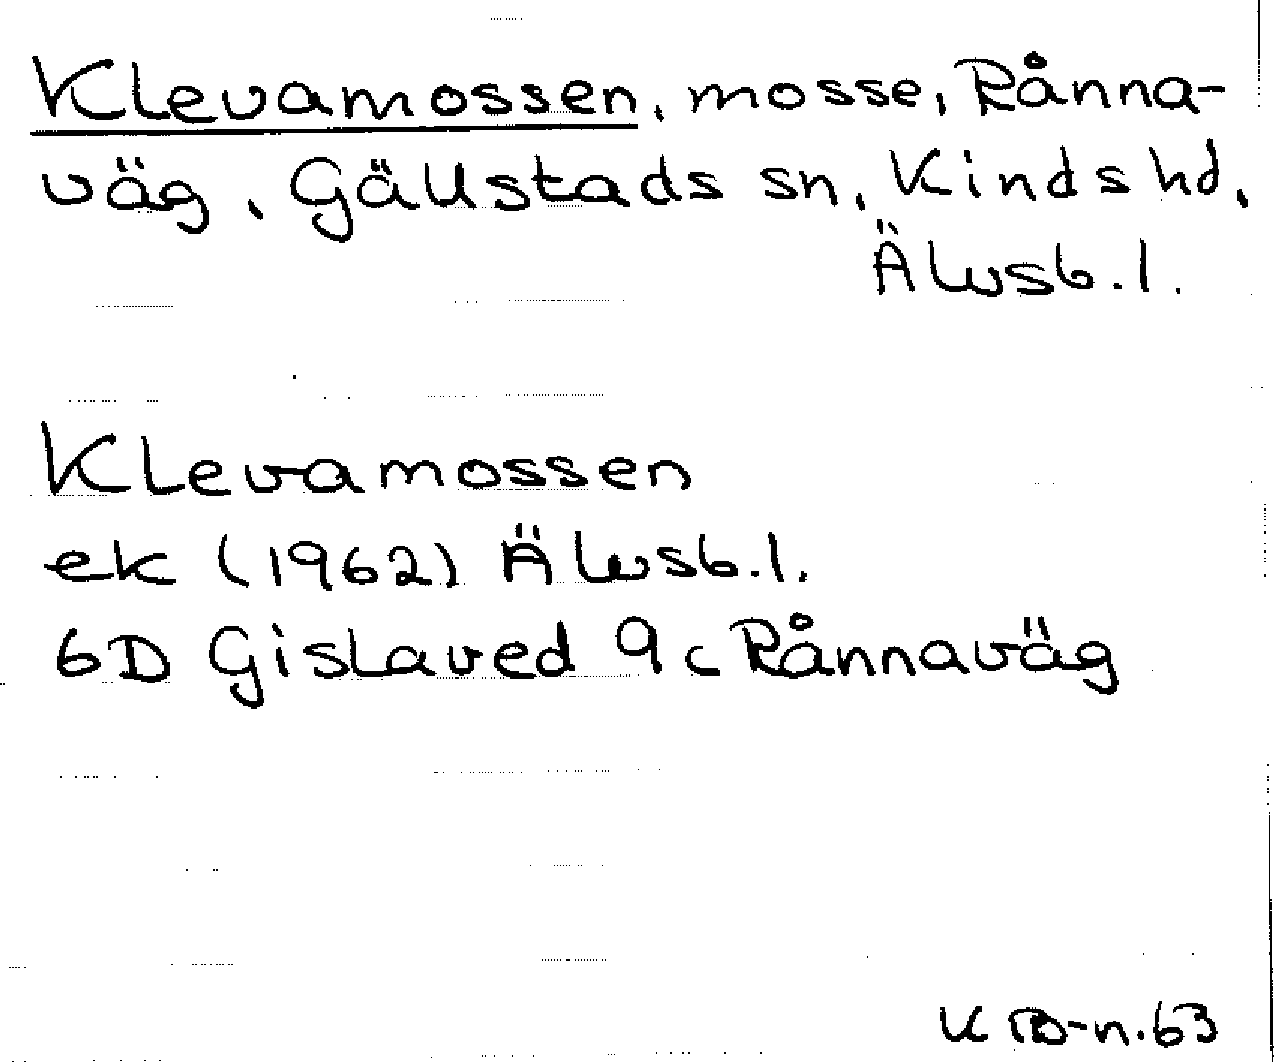 Klevamossen, mosse, Rånna-
väg, Gällstads sn, Kinds hd,
Älvsb.l.
Klevamossen
ek (1962) Älvsb.l.
6D Gislaved 9c Rånnaväg
63